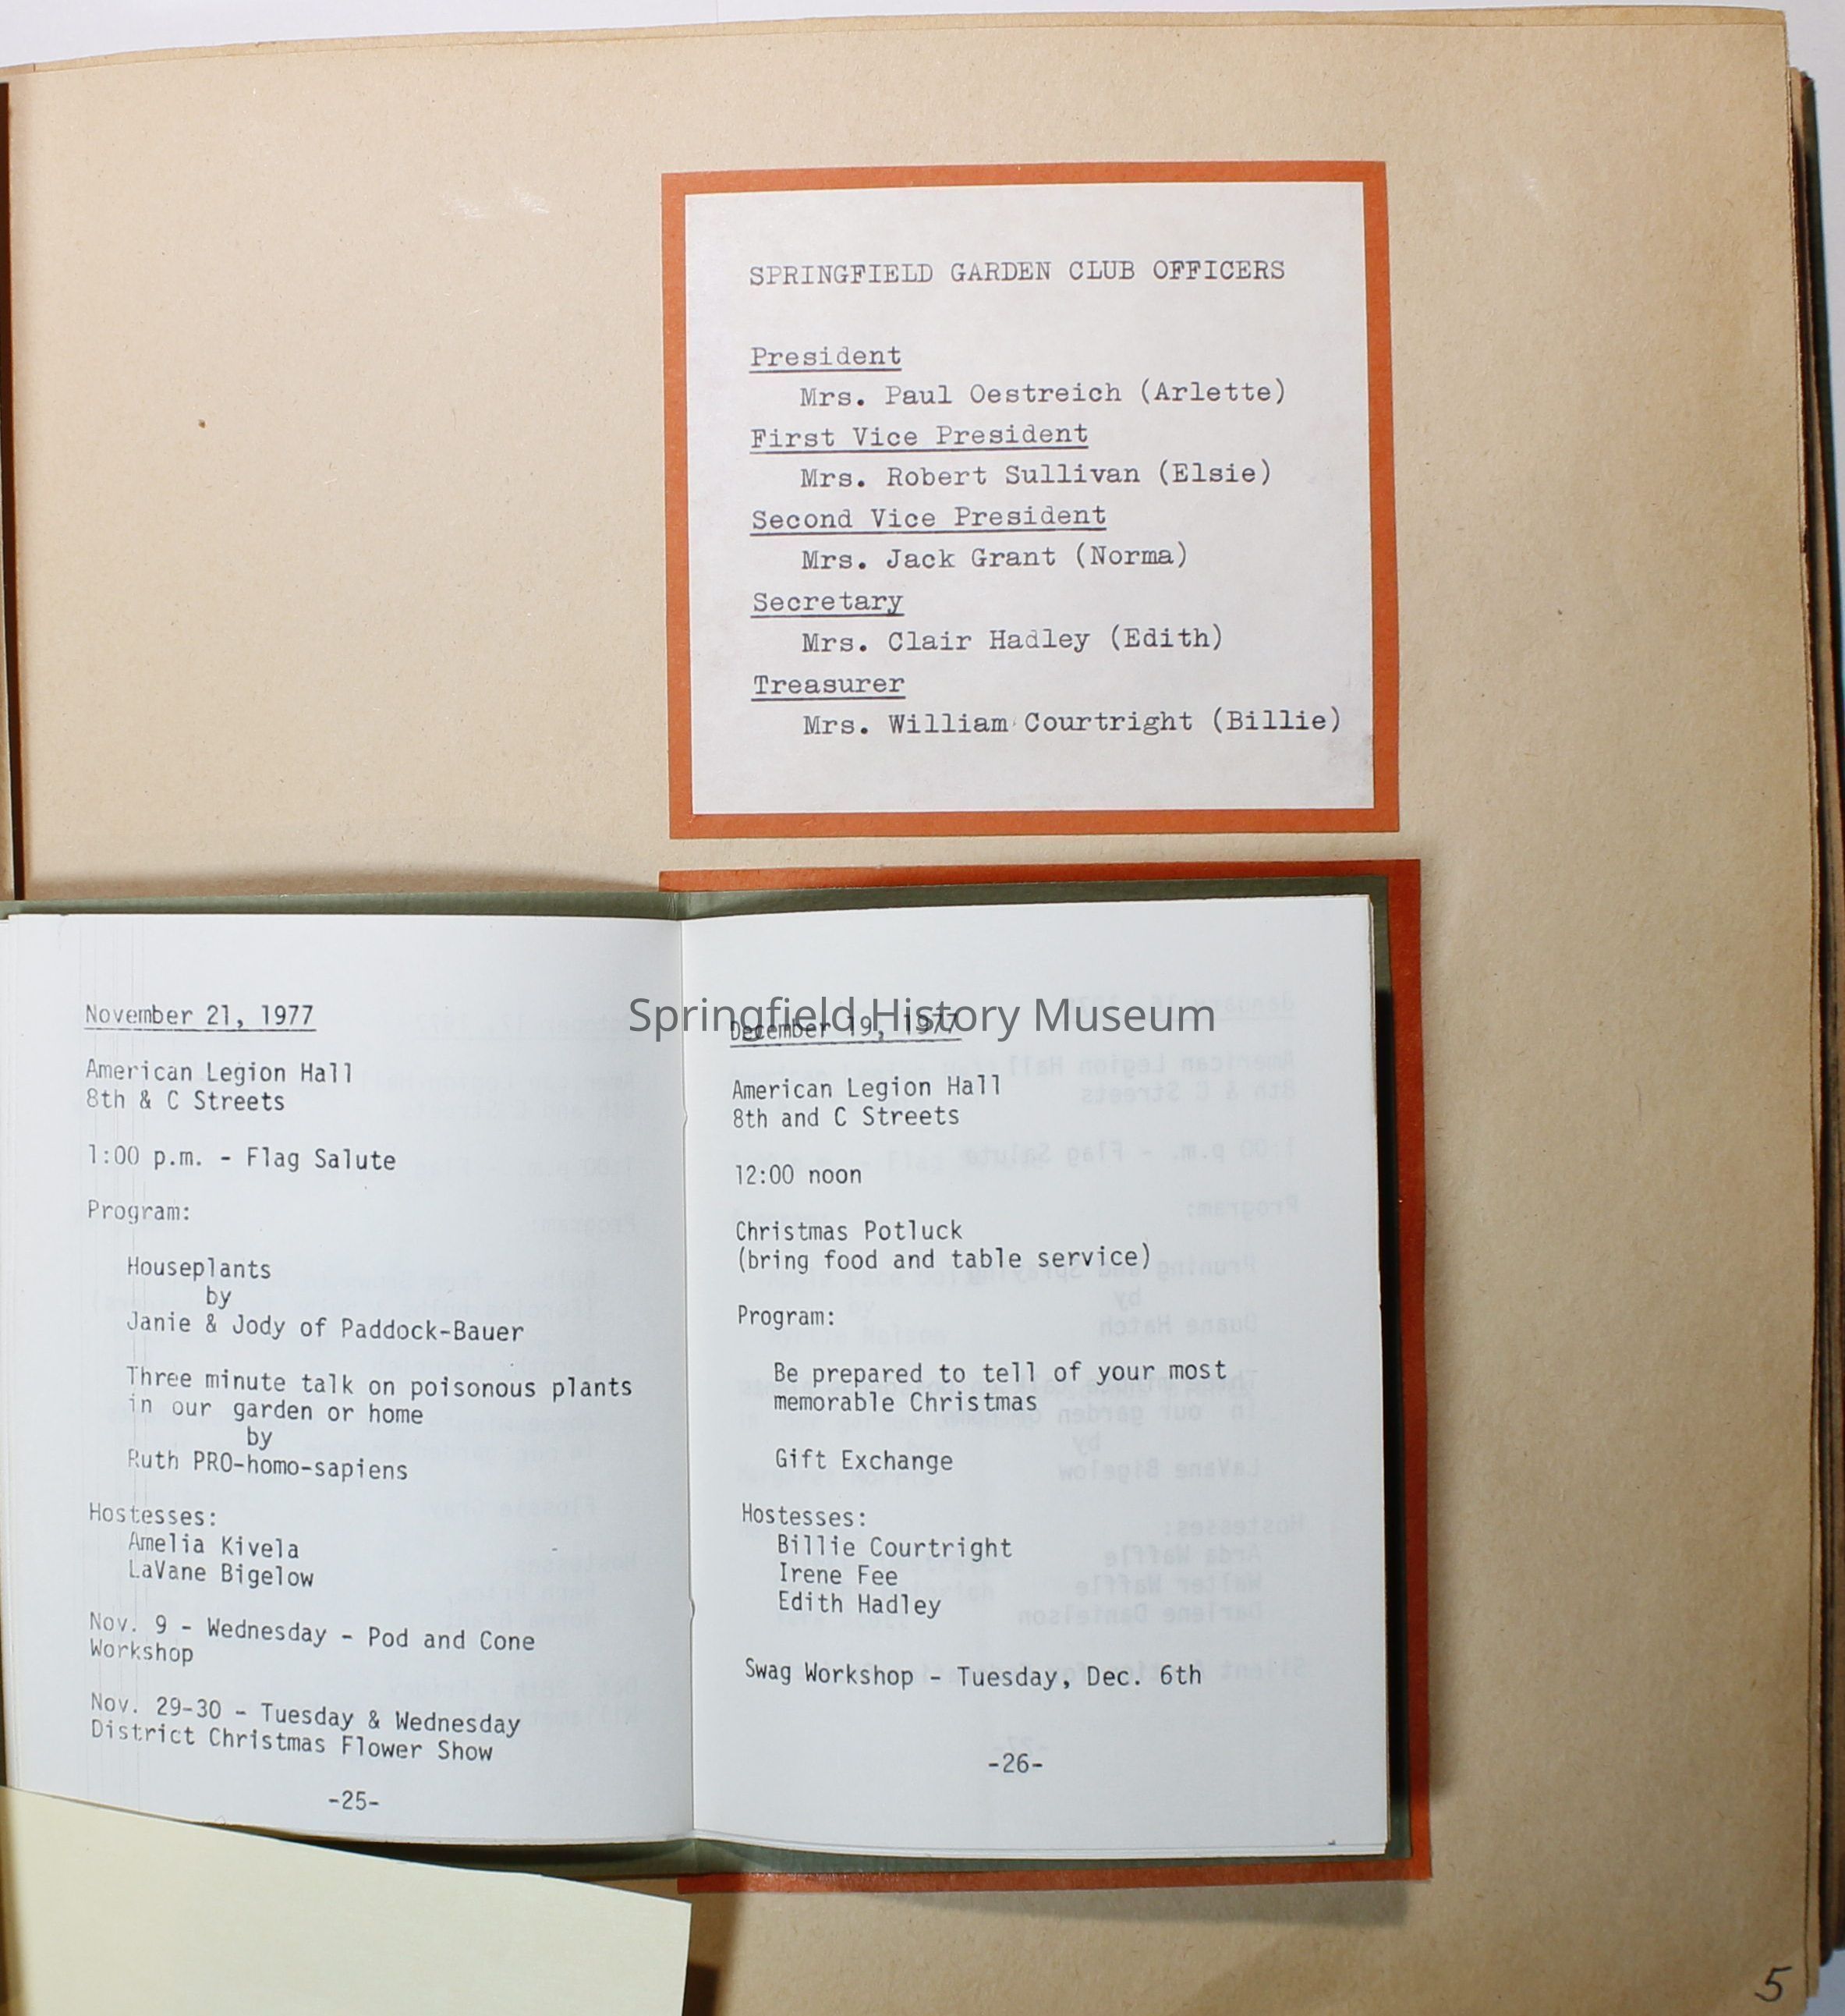 SPRINGFIELD GARDEN CLUB OFFICERS
President
Mrs. Paul Oestreich (Arlette)
First Vice President
Mrs. Robert Sullivan (Elsie)
Second Vice President
Mrs. Jack Grant (Norma)
Secretary
Mrs. Clair Hadley (Edith)
Treasurer
Mrs. William Courtright (Billie)
November 21, 1977
American Legion Hall
8th & C Streets
1:00 p.m. - Flag Salute
Program:
Houseplants
by
Janie & Jody of Paddock-Bauer
Three minute talk on poisonous plants
in our garden or home
by
Ruth PRO-homo-sapiens
Hostesses:
Amelia Kivela
LaVane Bigelow
Nov. 9 - Wednesday - Pod and Cone
Workshop
Nov. 29-30 - Tuesday & Wednesday
District Christmas Flower Show
-25-
Springfield History Museum
December 19, 1977
American Legion Hall
8th and C Streets
12:00 noon
Christmas Potluck
(bring food and table service)
Program:
Be prepared to tell of your most
memorable Christmas
Gift Exchange
Hostesses:
Billie Courtright
Irene Fee
Edith Hadley
Swag Workshop - Tuesday, Dec. 6th
-26-
5